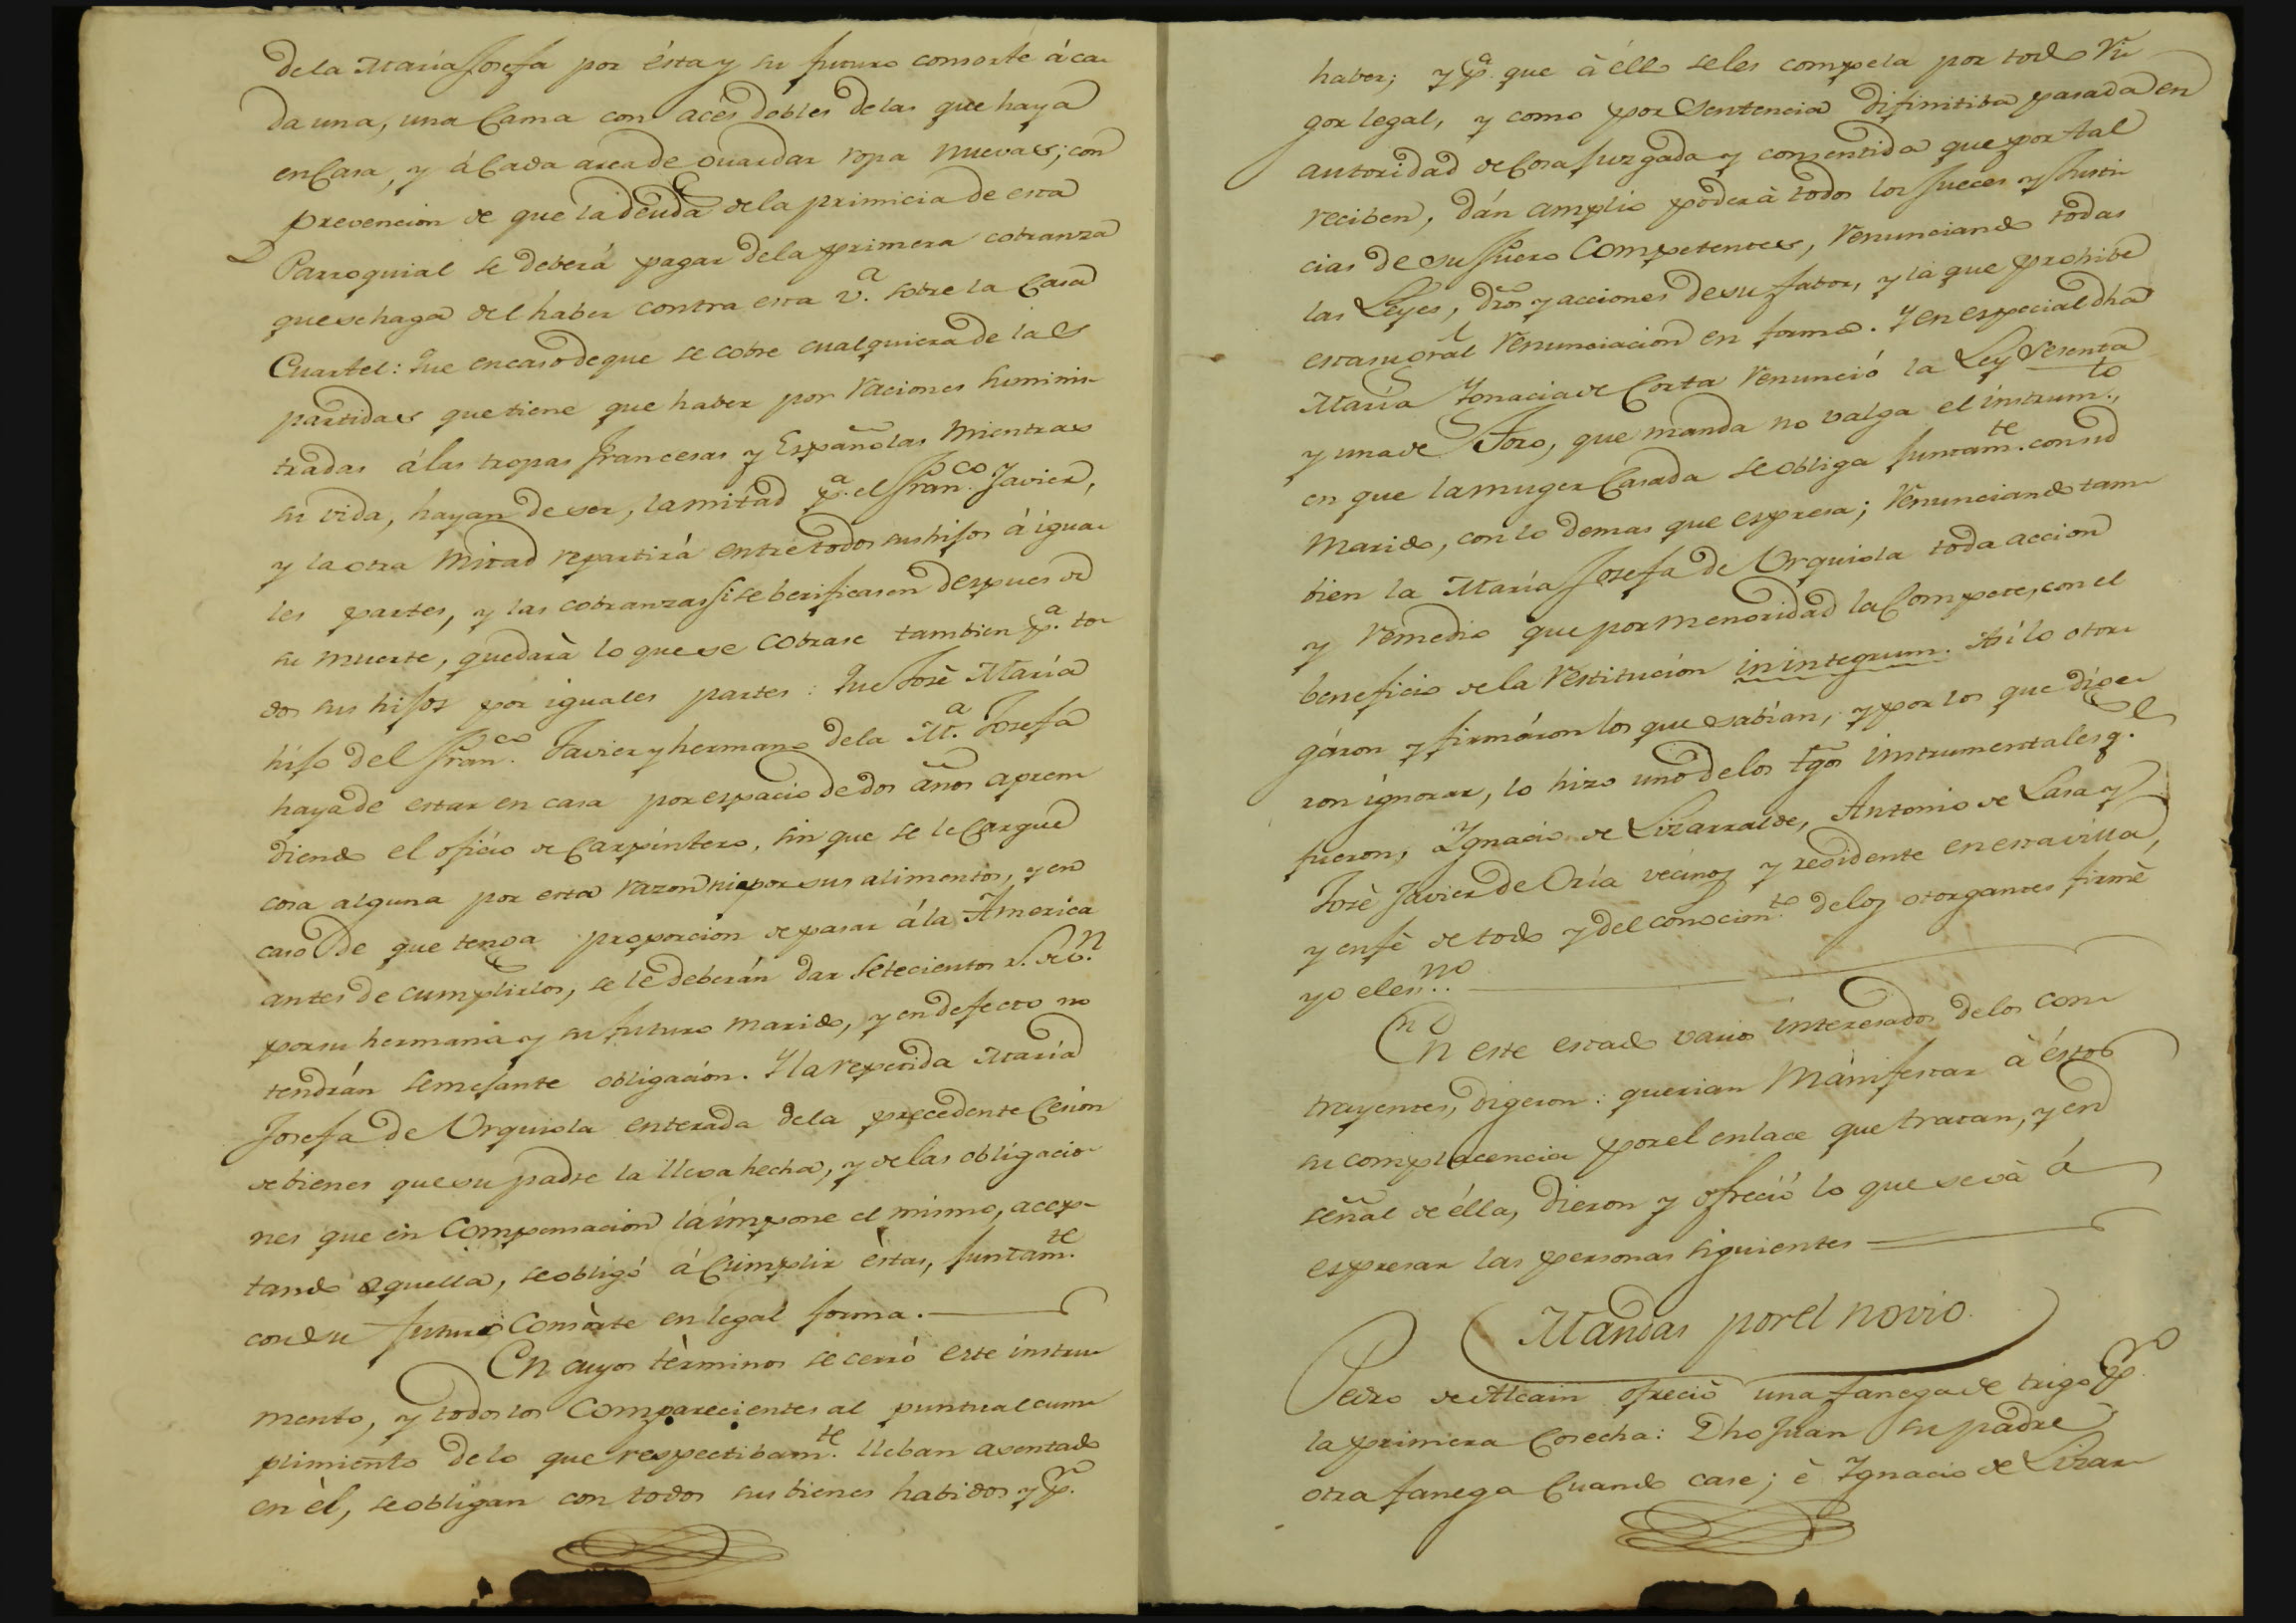 de la María Josefa por ésta y su futuro consorte á ca-
da una, una Cama con aces dobles de las que haya
en Casa, y á Cada arca de Guardar ropa nuevas; con
prevencion de que la deuda de la primicia de esta
Parroquial se deberá pagar de la primera cobranza
que se haga del haber contra esta v.ª sobre la Casa
Cuartel: Que en caso de que se cobre cualquiera de las
partidas que tiene que haber por raciones suminis-
tradas á las tropas francesas y Españolas mientras
su vida, hayan de ser, la mitad p.ª el Fran.co Javier,
y la otra mitad repartirá entre todos sus hijos á igua-
les partes, y las cobranzas si se berificasen despues de
su muerte, quedarà lo que se cobrase tambien p.ª to-
dos sus hijos por iguales partes: Que José María
hijo del Fran.co Javier y hermano de la M.ª Josefa
haya de estar en casa por espacio de dos años apren-
diendo el oficio de Carpintero, sin que se le Cargue
cosa alguna por esta razon ni por sus alimentos, y en
caso de que tenga proporcion de pasar á la America
antes de cumplirlos, se le deberán dar Setecientos r.s de v.n
por su hermana y su futuro marido, y en defecto no
tendrán semejante obligación. Y la repetida María
Josefa de Urquiola enterada de la precedente Cesion
de bienes que su padre la lleva hecha, y de las obligacio-
nes que en compensacion la impone el mismo, acep-
tando aquella, se obligó á Cumplir éstas, juntam.te
con su futuro Consorte en legal forma.
En cuyos tèrminos se cerró este instru-
mento, y todos los Comparecientes al puntual cum-
plimiento de lo que respectibam.te lleban asentado
en èl, se obligan con todos sus bienes habidos y p.r
haber; y p.ª que à éllo se les compela por todo ri-
gor legal, y como por Sentencia difinitiba pasada en
autoridad de Cosa Juzgada y consentida que por tal
reciben, dán amplio poder à todos los Jueces y Justi-
cias de su fuero Competentes, renunciando todas
las Leyes, dros y acciones de su fabor, y la que prohibe
esta su gral renunciación en forma. Y en especial dha
María Ygnacia de Corta renunció la Ley Sesenta
y una de Toro, que manda no valga el instrum.to,
en que la muger Casada se obliga juntam.te con su
marido, con lo demas que espresa; renunciando tam-
bien la María Josefa de Urquiola toda accion
y remedio que por menoridad la Compete, con el
beneficio de la restitución in integrum. Asi lo otor-
gáron y firmáron los que sabían, y por los que dige-
ron ignorar, lo hizo uno de los tgos instrumentales q.e
fueron, Ygnacio de Lizarralde, Antonio de Lasa y
José Javier de Oria vecinos y residente en esta villa,
y en fé de todo y del conocim.to de los otorgantes firmè
yo el es.no
En este estado varios interesados de los con-
trayentes, digeron: querian manifestar à éstos
su complacencia por el enlace que tratan, y en
señal de élla, dieron y ofreció lo que se và á
espresar las personas siguientes
Mandas por el novio.
Pedro de Alcain ofreciò una fanega de trigo p.ª
la primera Cosecha: Dho Juan su padre
otra fanega Cuando case; è Ygnacio de Lizar-